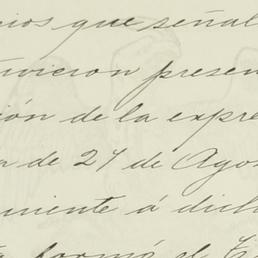 cios que señal
tuvieron presen
ión de la expre
a de 27 de Agos
mente á dich
ta formó el T